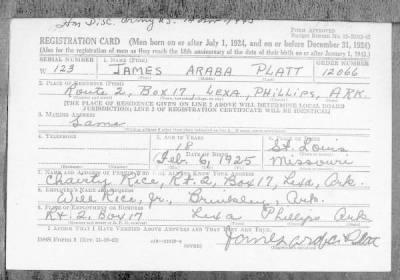 Hon Disc. Army U.S. 14 Nov 1945
FORM APPROVED
REGISTRATION CARD (Men born on or after July 1, 1924, and on or before December 31, 1924)
(Also for the registration of men as they reach the 18th anniversary of the date of their birth on or after January 1, 1943.)
SERIAL NUMBER 1. NAME (Print) ORDER NUMBER
W 123 JAMES ARABA PLATT 12066
2. PLACE OF RESIDENCE (Print)
Route 2, Box 17, LEXA, PHILLIPS, ARK.
[THE PLACE OF RESIDENCE GIVEN ON LINE 2 ABOVE WILL DETERMINE LOCAL BOARD
JURISDICTION; LINE 2 OF REGISTRATION CERTIFICATE WILL BE IDENTICAL]
3. MAILING ADDRESS
Same
4. TELEPHONE 5. AGE IN YEARS 6. PLACE OF BIRTH
18 St. Louis
DATE OF BIRTH
Feb. 6, 1925 Missouri
7. NAME AND ADDRESS OF PERSON WHO WILL ALWAYS KNOW YOUR ADDRESS
Charity Rice, Rt. 2, Box 17, Lexa, Ark.
8. EMPLOYER'S NAME AND ADDRESS
Will Rice, Jr., Brinkley, Ark.
9. PLACE OF EMPLOYMENT OR BUSINESS
Rt. 2, Box 17 Lexa Phillips Ark
I AFFIRM THAT I HAVE VERIFIED ABOVE ANSWERS AND THAT THEY ARE TRUE.
DSS Form 1